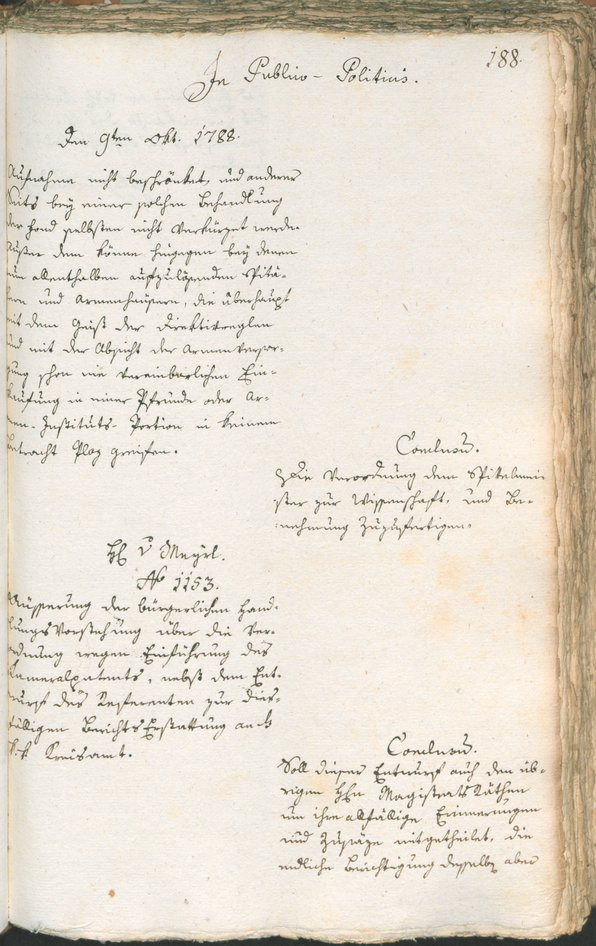 188.
In Publico-Politicis.
Den 9ten Okt. 1788.
Aufnahme nicht beschränket, und anderer
Seits bey einer solchen Behandlung
der Fond selbsten nicht verkürzet werde.
Außer dem könne hingegen bey denen
nun allenthalben aufzulösenden Spitä-
lern und Armenhäusern, die überhaupt
mit dem Geist der Direktivreglen
und mit der Absicht der Armenversor-
gung schon nie vereinbarlichen Ein-
kaufung in eine Pfründe oder Ar-
men-Instituts-Portion in keinem
Betracht Plaz greifen.
Conclusum.
Die Verordnung dem Spitalmei-
ster zur Wissenschaft, und Be-
nehmung zuzufertigen.
H. v Mayrl.
No 1153.
Äusserung der bürgerlichen Hand-
lungsVorstehung über die Ver-
ordnung wegen Einführung des
Kameralpatents, nebst dem Ent-
wurf des Referenten zur dies-
fälligen BerichtsErstattung an k.
k. Kreisamt.
Conclusum.
Soll dieser Entwurf auch den üb-
rigen H. Magistrats Räthen
um ihre allfällige Erinnerungen
und Zusäze mitgetheilet, die
endliche Berichtigung desselben aber